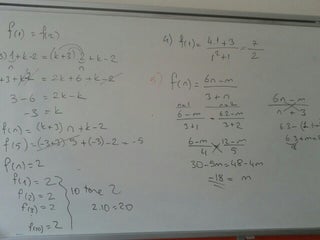 f(1) = f(2)
3)1+k-2 = (k+3)2+k-2
3+k-2 = 2k+6+k-2
3-6 = 2k-k
-3 = k
f(n) = (k+3)n+k-2
f(5) = (-3+3)·5+(-3)-2 = -5
f(n) = 2
f(1) = 2
f(2) = 2
f(10) = 2
10 tane 2
2.10=20
4) f(1) = 4.1+3 / 1²+1 = 7/2
f(n) = 6n-m / 3+n
n=1 n=2
6-m / 3+1 = 6.2-m / 3+2
6-m / 4 = 12-m / 5
30-5m = 48-4m
-18 = m
6n-m / n+3